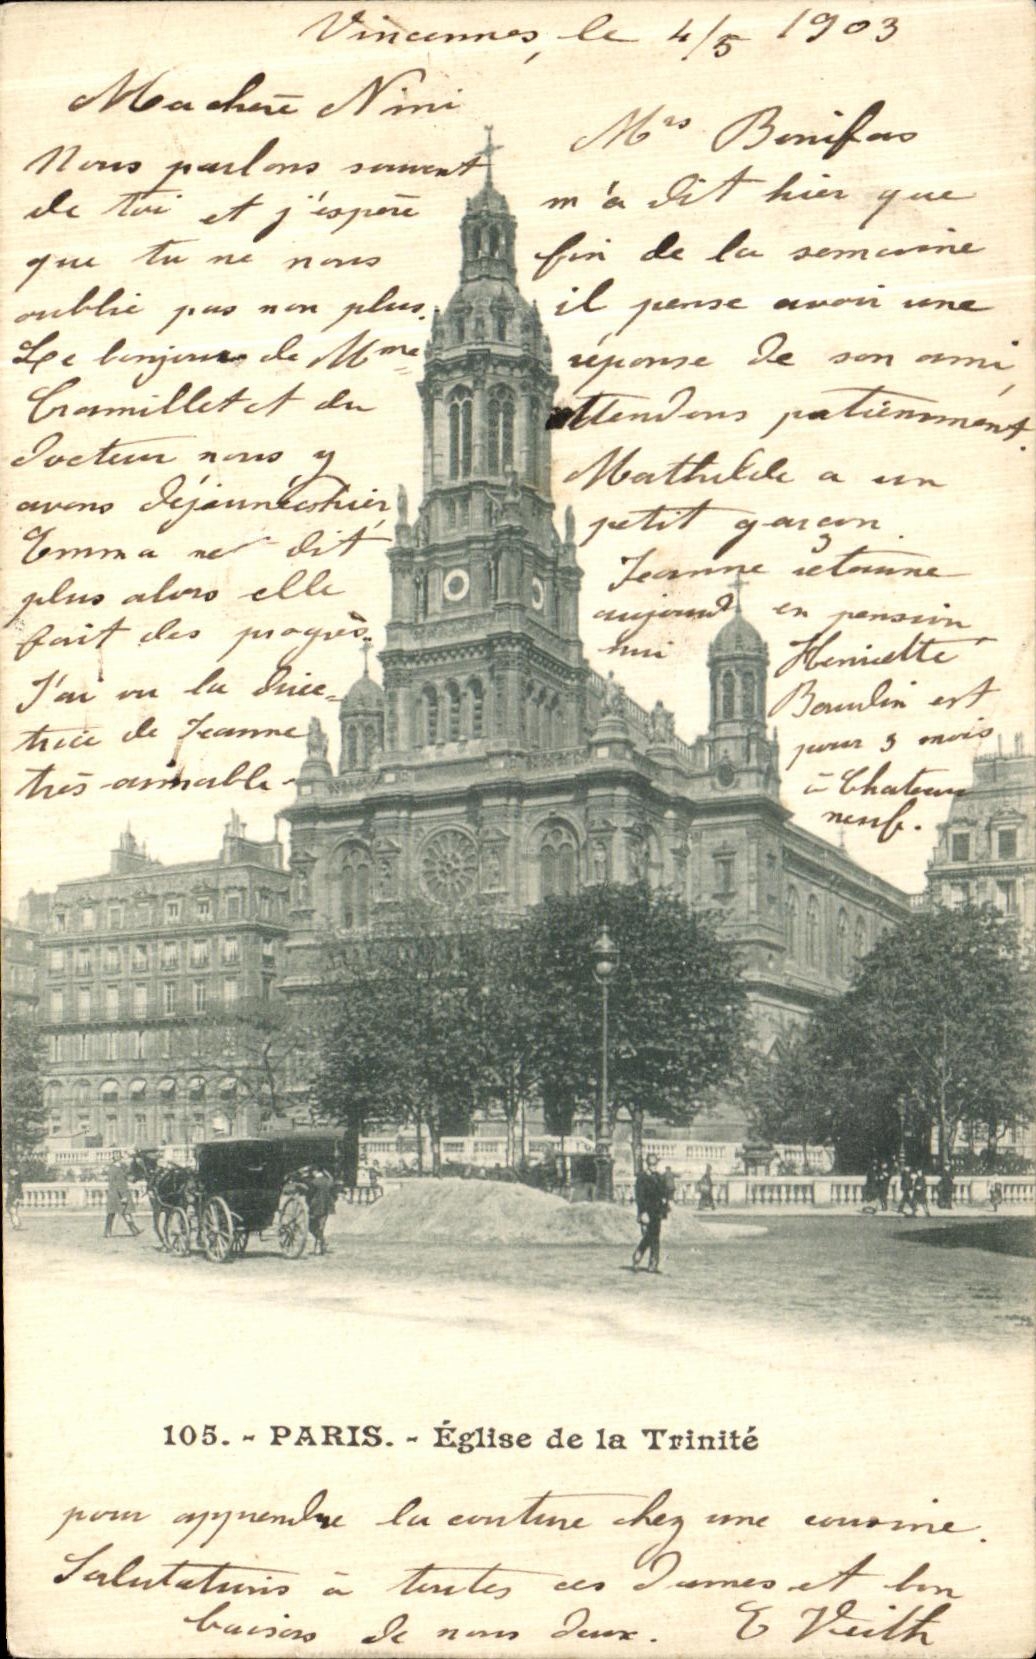 Vincennes, le 4/5 1903
Ma chère Nini
Nous parlons souvent
de toi et j'espère
que tu ne nous
oublie pas non plus.
Le bonjour de Mme
Cramillet et du
docteur nous y
avons déjeuné hier
Emma ne dit
plus alors elle
fait des progrès.
J'ai vu la direc=
trice de Jeanne
très aimable -
Mrs Bonifas
m'a dit hier que
fin de la semaine
il pense avoir une
réponse de son ami,
attendons patiemment.
Mathilde a un
petit garçon.
Jeanne retourne
aujourd'hui en pension
Henriette
Bourdin est
pour 3 mois
à Chateau
neuf.
105. - PARIS. - Église de la Trinité
pour apprendre la couture chez une cousine.
Salutations à toutes ces dames et bon
baisers de nous deux. E Veith